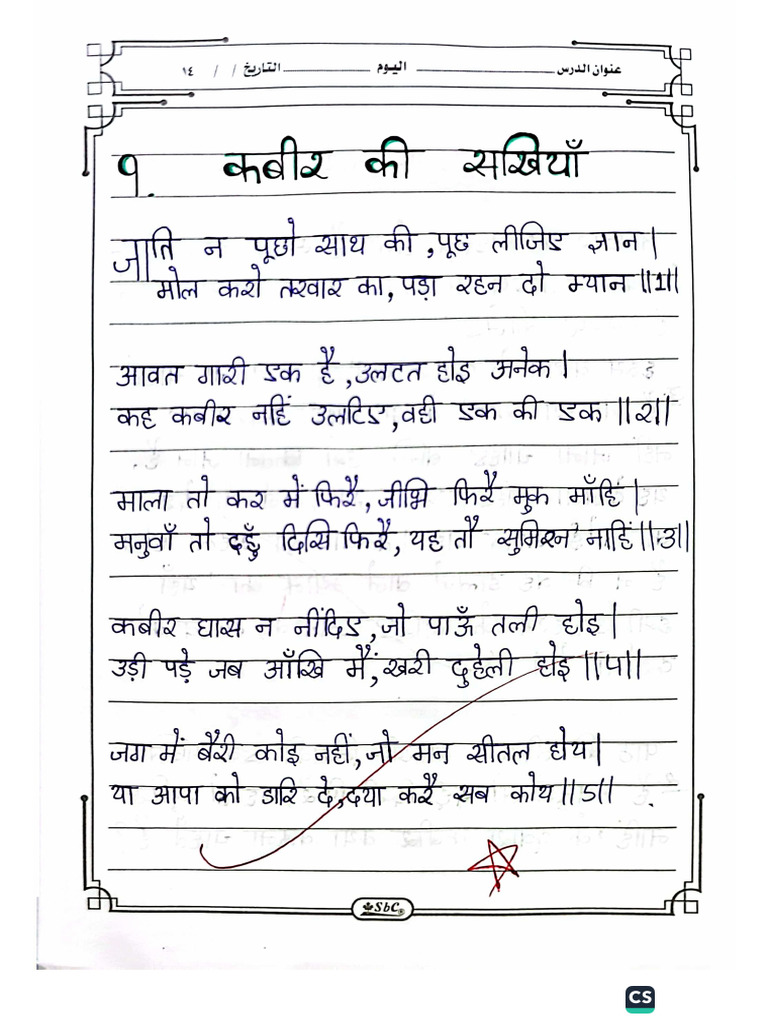 عنوان الدرس ــــــــــــ اليوم ــــــــــــ التاريخ / / ١٤
१. कबीर की सखियाँ
जाति न पूछो साथ की, पूछ लीजिड ज्ञान |
मोल करो तरवार का, पड़ा रहन दो म्यान ||1||
आवत गारी डक है, उलटत होइ अनेक |
कह कबीर नहिं उलटिड, वही डक की डक ||२||
माला तो कर में फिरै, जीभि फिरै मुक माँहिं |
मनुवाँ तो दहुँ दिसि फिरै, यह तौ सुमिरन नाहिं ||३||
कबीर घास न नींदिड, जो पाऊँ तली होइ |
उड़ी पड़े जब आँखि मैं, खरी दुहेली होइ ||५||
जग में बैरी कोइ नहीं, जो मन सीतल होय |
या आपा को डारि दे, दया करै सब कोय ||5||
SbC®
CS